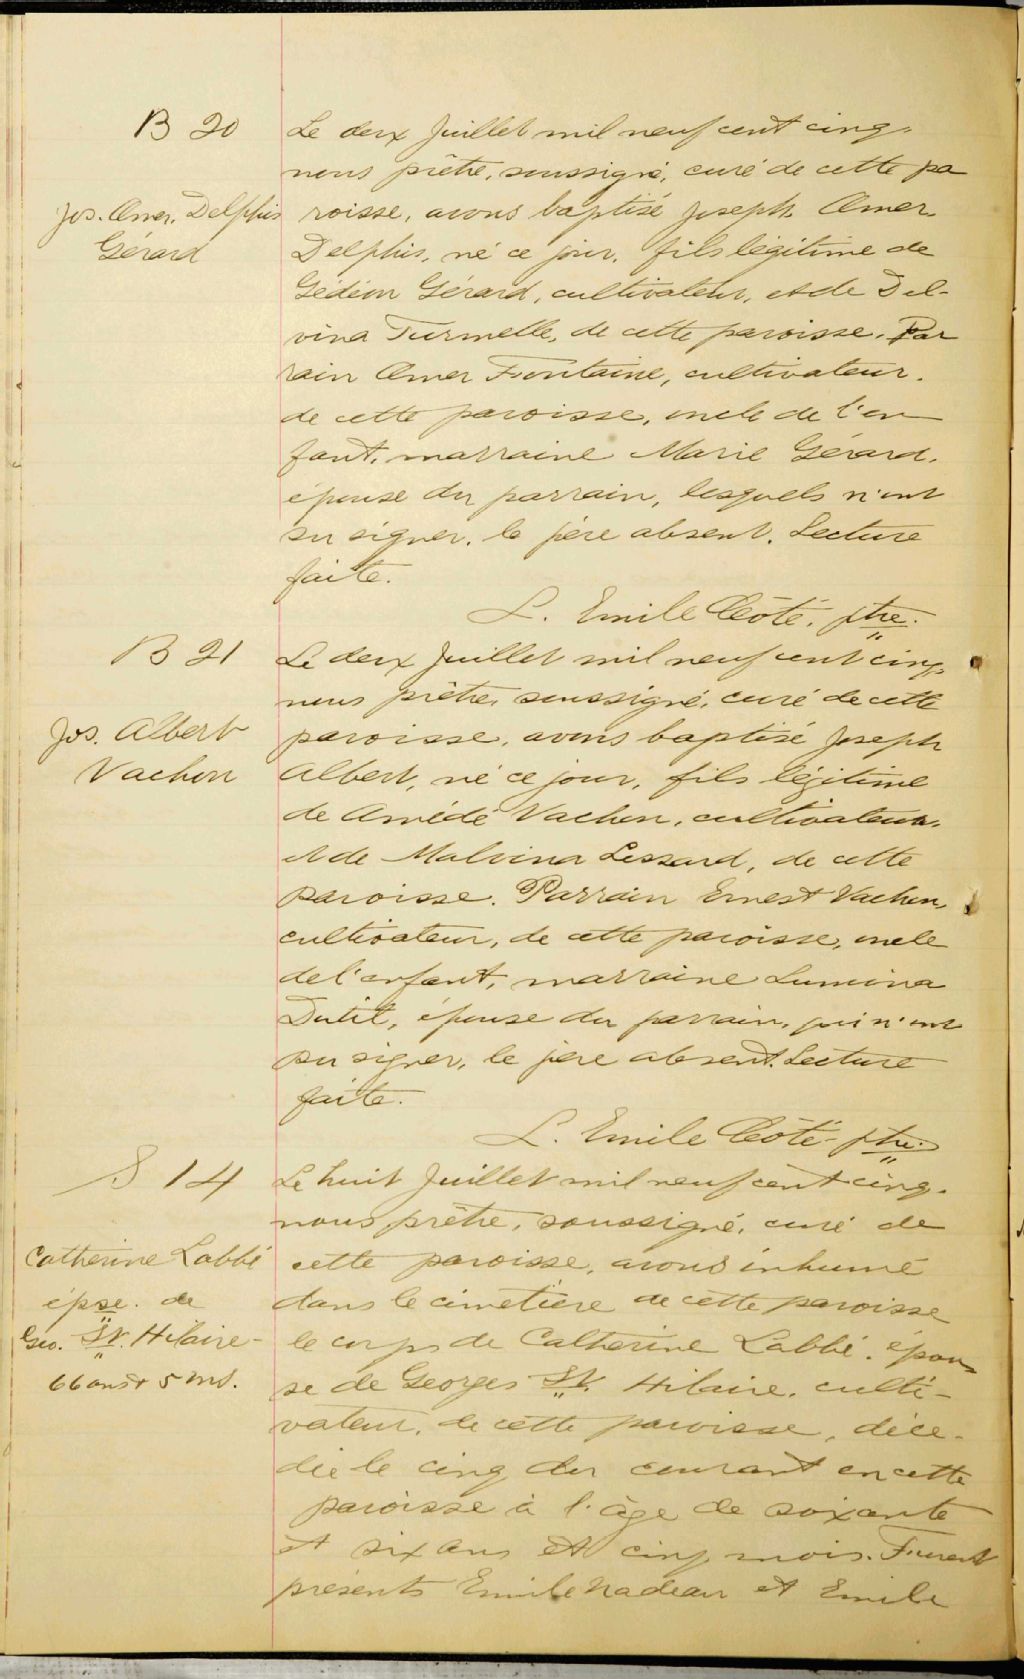 B 20
Jos. Omer. Delphis
Gérard
Le deux Juillet mil neuf cent cinq.
nous prêtre, soussigné, curé de cette pa
roisse, avons baptisé Joseph Omer.
Delphis, né ce jour, fils légitime de
Gédéon Gérard, cultivateur, et de Del-
vina Turmelle, de cette paroisse. Par
rain Omer Fontaine, cultivateur.
de cette paroisse, oncle de l'en
fant, marraine Marie Gérard.
épouse du parrain, lesquels n'ont
su signer. le père absent. Lecture
faite.
L. Emile Côté, ptre.
B 21
Jos. Albert
Vachon
Le deux Juillet mil neuf cent cinq.
nous prêtre, soussigné, curé de cette
paroisse, avons baptisé Joseph
Albert, né ce jour, fils légitime
de Amédé Vachon, cultivateur.
et de Malvina Lessard, de cette
paroisse. Parrain Ernest Vachon,
cultivateur, de cette paroisse, oncle
de l'enfant, marraine Lumina
Dutil, épouse du parrain, qui n'ont
su signer, le père absent. Lecture
faite.
L. Emile Côté ptre.
S 14
Catherine Labbé
épse. de
Geo. St. Hilaire
66 ans + 5 ms.
Le huit Juillet mil neuf cent cinq.
nous prêtre, soussigné, curé de
cette paroisse, avons inhumé
dans le cimetière de cette paroisse
le corps de Catherine Labbé. épou
se de Georges St. Hilaire. culti-
vateur, de cette paroisse, décé-
dée le cinq du courant en cette
paroisse à l'âge de soixante
et six ans et cinq mois. Furent
présents Emile Nadeau et Emile